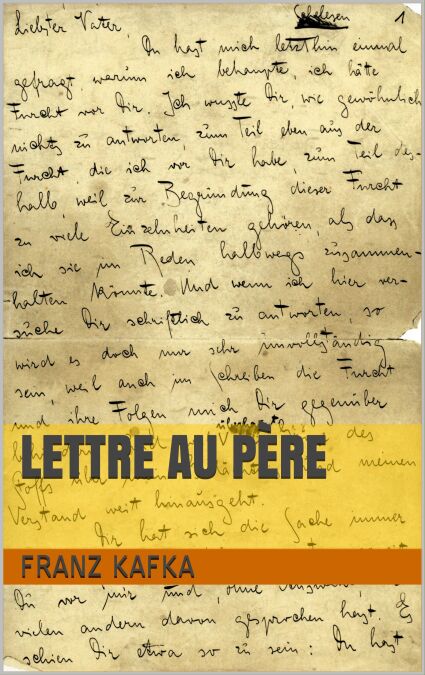 Liebster Vater, Schelesen 1
Du hast mich letzthin einmal
gefragt, warum ich behaupte, ich hätte
Furcht vor Dir. Ich wusste Dir, wie gewöhnlich
nichts zu antworten, zum Teil eben aus der
Furcht, die ich vor Dir habe, zum Teil des-
halb, weil zur Begründung dieser Furcht
zu viele Einzelnheiten gehören, als dass
ich sie im Reden halbwegs zusammen-
halten könnte. Und wenn ich hier ver-
suche Dir schriftlich zu antworten, so
wird es doch nur sehr unvollständig
sein, weil auch im Schreiben die Furcht
und ihre Folgen mich Dir gegenüber
des
LETTRE AU PÈRE
Stoffs über meinen
Verstand weit hinausgeht.
Dir hat sich die Sache immer
FRANZ KAFKA
Du vor mir und, ohne
vielen andern davon gesprochen hast. Es
schien Dir etwa so zu sein: Du hast